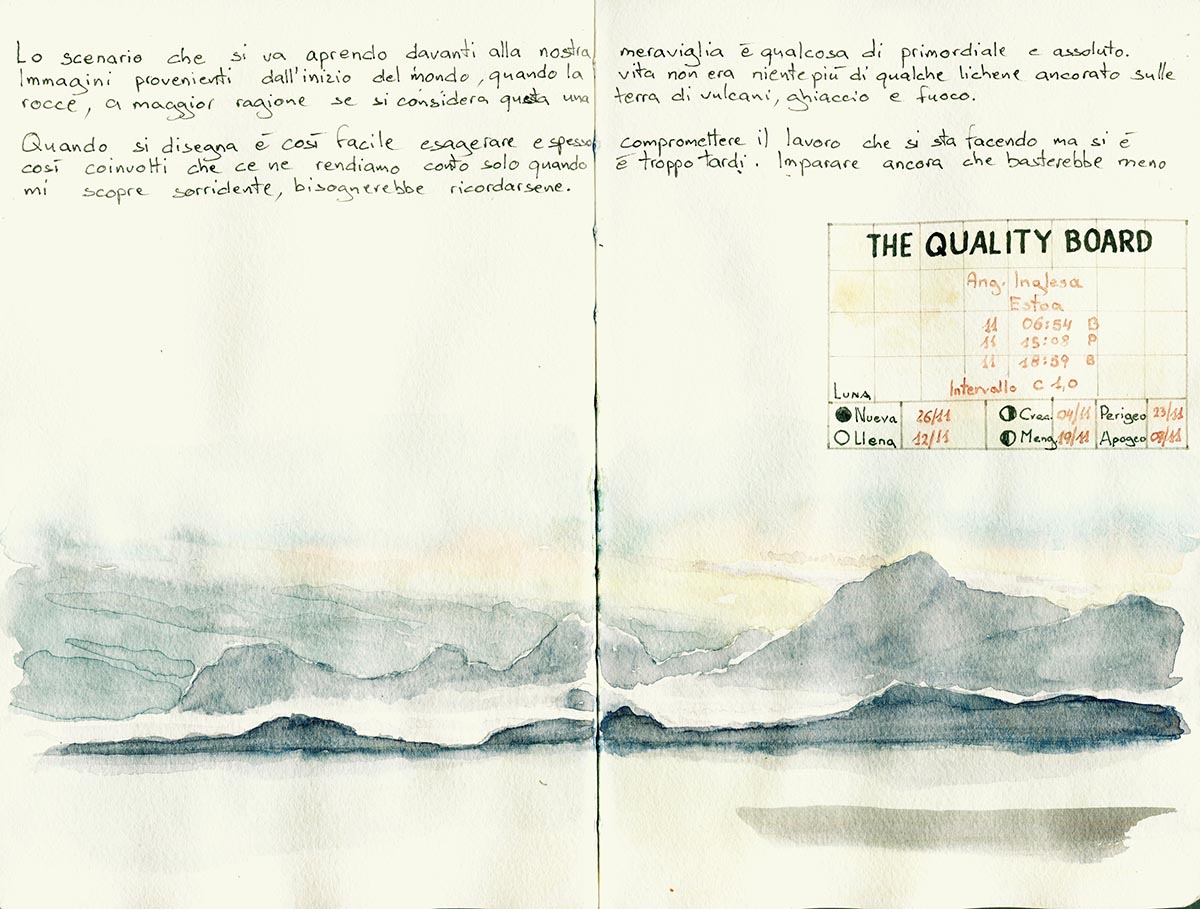 Lo scenario che si va aprendo davanti alla nostra meraviglia è qualcosa di primordiale e assoluto.
Immagini provenienti dall'inizio del mondo, quando la vita non era niente più di qualche lichene ancorato sulle
rocce, a maggior ragione se si considera questa una terra di vulcani, ghiaccio e fuoco.
Quando si disegna è così facile esagerare e spesso compromettere il lavoro che si sta facendo ma si è
così coinvolti che ce ne rendiamo conto solo quando è troppo tardi. Imparare ancora che basterebbe meno
mi scopre sorridente, bisognerebbe ricordarsene.
THE QUALITY BOARD
Ang. Inglesa
Estoa
11 06:54 B
11 15:08 P
11 18:59 B
Intervallo C 1,0
LUNA
Nueva 26/11 Crea. 04/11 Perigeo 23/11
Llena 12/11 Meng. 19/11 Apogeo 08/11